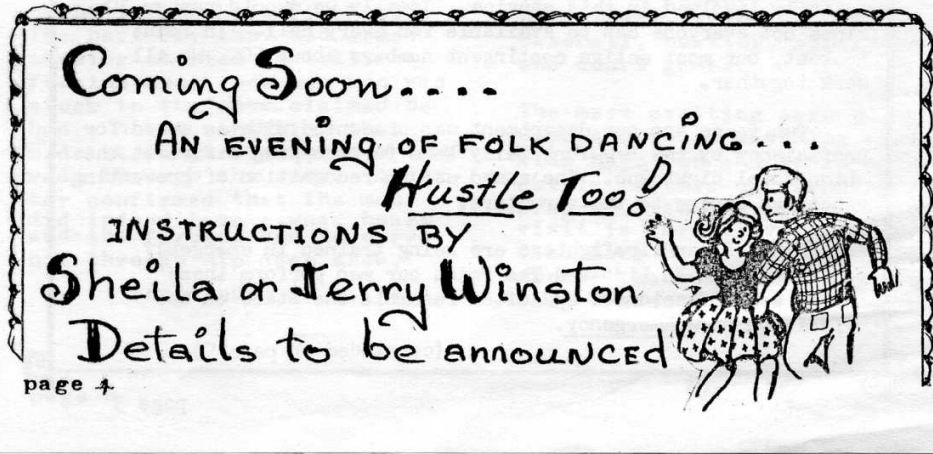 Coming Soon....
AN EVENING OF FOLK DANCING...
Hustle Too!
INSTRUCTIONS BY
Sheila or Jerry Winston
Details to be announced
page 4